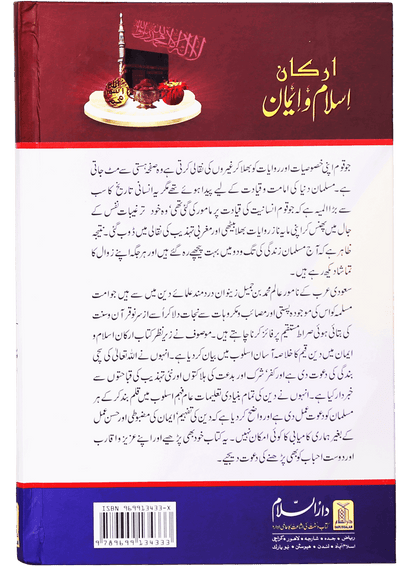 ارکان
اسلام و ایمان
جو قوم اپنی خصوصیات اور روایات کو بھلا کر غیروں کی نقالی کرتی ہے وہ صفحۂ ہستی سے مٹ جاتی
ہے۔ مسلمان دنیا کی امامت و قیادت کے لیے پیدا ہوئے تھے مگر یہ انسانی تاریخ کا سب
سے بڑا المیہ ہے کہ جو قوم انسانیت کی قیادت پر مامور کی گئی تھی، وہ خود ترغیبات نفس کے
جال میں پھنس کر اپنی مایۂ ناز روایات بھلا بیٹھی اور مغربی تہذیب کی نقالی میں ڈوب گئی۔ نتیجہ
ظاہر ہے کہ آج مسلمان زندگی کی تگ و دو میں بہت پیچھے رہ گئے ہیں اور ہر جگہ اپنے زوال کا
تماشا دیکھ رہے ہیں۔
سعودی عرب کے نامور عالم محمد بن جمیل زینو ان دردمند علمائے دین میں سے ہیں جو امت
مسلمہ کو اس کی موجودہ پستی اور مصائب و مکروہات سے نجات دلا کر اسے از سر نو قرآن و سنت
کی بتائی ہوئی صراط مستقیم پر فائز کرنا چاہتے ہیں۔ موصوف نے زیر نظر کتاب ارکان اسلام و
ایمان میں دین قیم کا خلاصہ آسان اسلوب میں بیان کر دیا ہے۔ انہوں نے اللہ تعالیٰ کی سچی
بندگی کی دعوت دی ہے اور کفر، شرک اور بدعت کی ہلاکتوں اور نئی تہذیب کی قباحتوں سے
خبردار کیا ہے۔ انہوں نے دین کی تمام بنیادی تعلیمات عام فہم اسلوب میں قلم بند کر کے ہر
مسلمان کو دعوت عمل دی ہے اور واضح کر دیا ہے کہ دین کی تفہیم، ایمان کی مضبوطی اور حسن عمل
کے بغیر ہماری کامیابی کا کوئی امکان نہیں۔ یہ کتاب خود بھی پڑھیے اور اپنے عزیز و اقارب
اور دوست احباب کو بھی پڑھنے کی دعوت دیجیے۔
ISBN 969913433-X
9 789699 134333
دارالسلام
کتاب و سنت کی اشاعت کا عالمی ادارہ
ریاض • جدہ • شارجہ • لاہور • کراچی
اسلام آباد • لندن • ہیوسٹن • نیو یارک